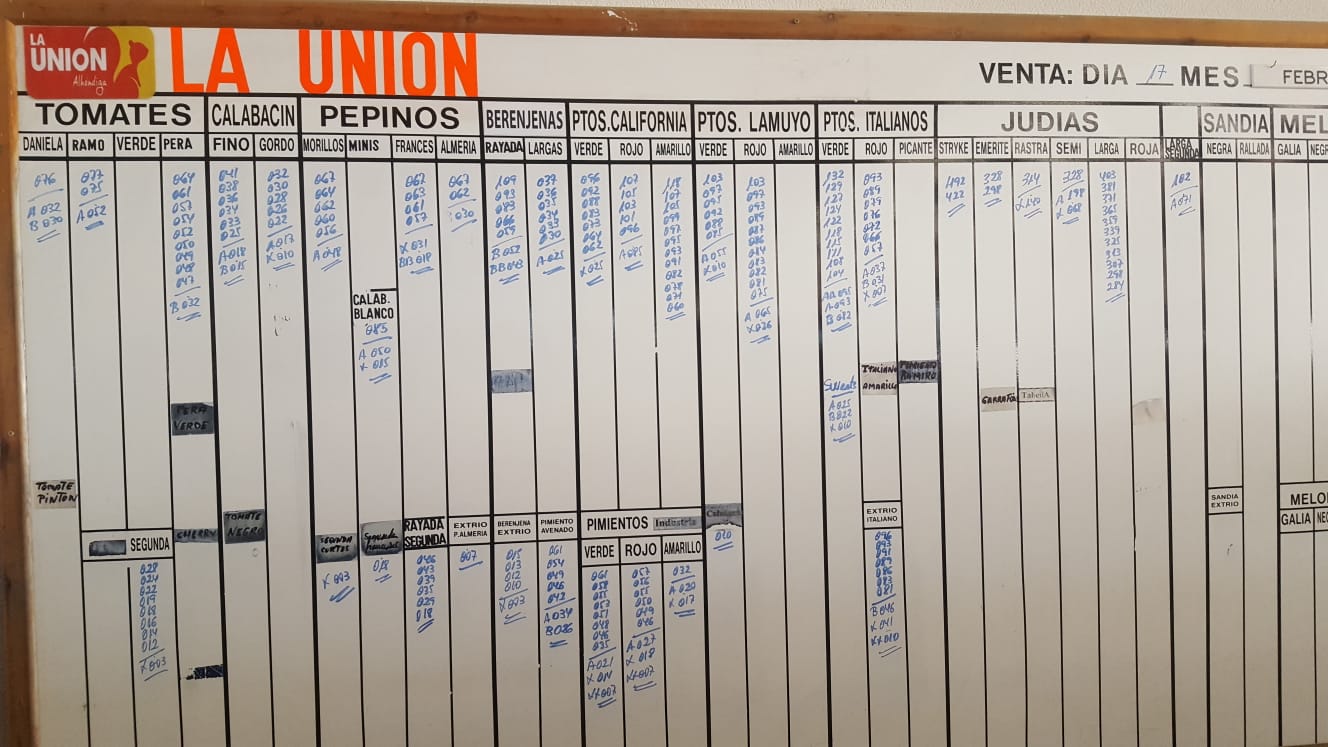 LA
UNION
Alhóndiga
LA UNION
VENTA: DIA 17 MES FEBR
TOMATES
CALABACIN
PEPINOS
BERENJENAS
PTOS.CALIFORNIA
PTOS. LAMUYO
PTOS. ITALIANOS
JUDIAS
SANDIA
MEL
DANIELA
RAMO
VERDE
PERA
FINO
GORDO
MORILLOS
MINIS
FRANCES
ALMERIA
RAYADA
LARGAS
VERDE
ROJO
AMARILLO
VERDE
ROJO
AMARILLO
VERDE
ROJO
PICANTE
STRYKE
EMERITE
RASTRA
SEMI
LARGA
ROJA
LARGA
SEGUNDA
NEGRA
RALLADA
GALIA
NEGR
076
A 032
B 030
077
075
A 052
064
061
057
054
052
050
049
048
047
B 032
041
038
036
034
033
025
A 018
B 015
032
030
028
026
022
A 017
X 010
067
064
062
060
056
A 048
CALAB.
BLANCO
085
A 050
X 015
067
063
061
057
X 031
BB 018
067
062
030
109
093
083
066
059
B 052
BB 043
037
036
035
034
033
030
A 025
096
092
088
083
073
064
062
X 025
107
105
103
101
096
A 085
118
107
105
099
097
095
093
091
082
078
071
060
103
097
095
092
088
085
A 055
X 010
103
097
093
089
087
086
084
083
082
081
075
A 065
X 026
132
129
127
124
122
118
115
111
108
104
AA 095
A 093
B 082
A 025
B 022
X 010
093
089
079
076
072
066
057
A 037
B 031
X 007
ITALIANO
AMARILLO
PIMIENTO
RAMIRO
492
422
328
298
314
X 140
328
A 198
X 068
403
381
371
365
359
339
325
313
307
298
284
102
A 071
GARRAFAL
TabellA
PERA
VERDE
TOMATE
PINTON
SEGUNDA
028
024
022
019
018
016
014
012
X 003
CHERRY
TOMATE
NEGRO
SEGUNDA
CORTOS
X 003
Segunda
018
RAYADA
SEGUNDA
046
043
039
035
029
018
EXTRIO
P.ALMERIA
007
BERENJENA
EXTRIO
015
013
012
010
X 003
PIMIENTO
AVENADO
061
054
049
046
042
A 034
B 026
PIMIENTOS Industria
VERDE
ROJO
AMARILLO
061
058
055
053
051
048
046
035
A 021
X 014
XX 007
057
056
055
050
049
046
A 027
X 018
XX 007
032
A 020
X 017
020
EXTRIO
ITALIANO
096
093
091
089
086
083
081
B 046
X 041
XX 010
SANDIA
EXTRIO
MELO
GALIA
NEG